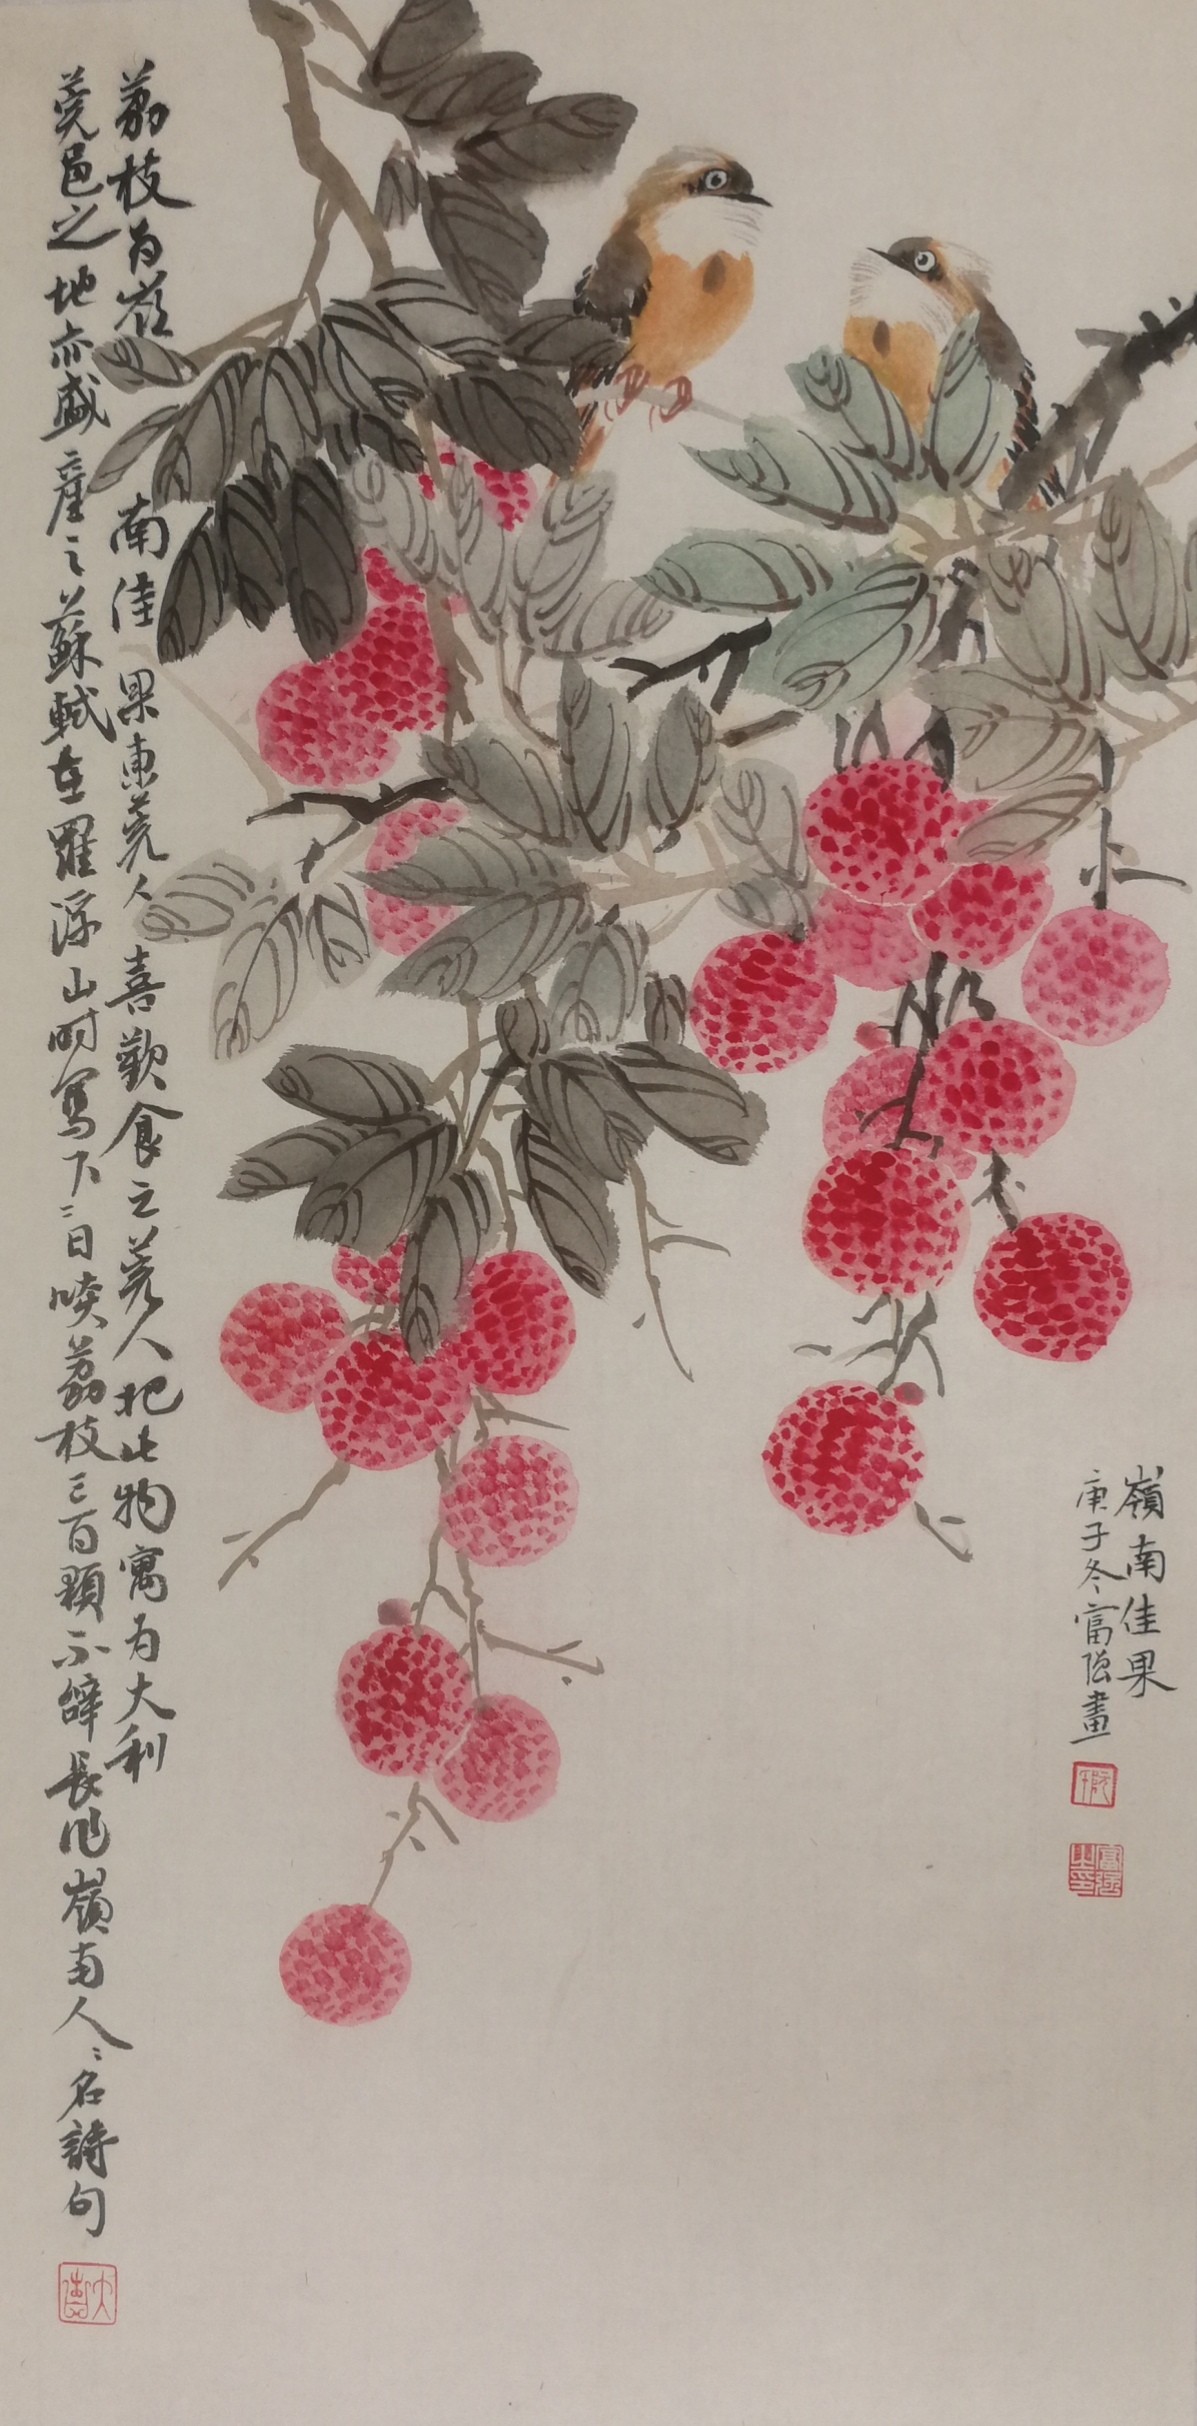 嶺南佳果
庚子冬富強畫
荔枝為嶺南佳果東莞人喜歡食之莞人把此物寓為大利
莞邑之地亦盛產之蘇軾在羅浮山時寫下〻日啖荔枝三百顆不辭長作嶺南人〻名詩句